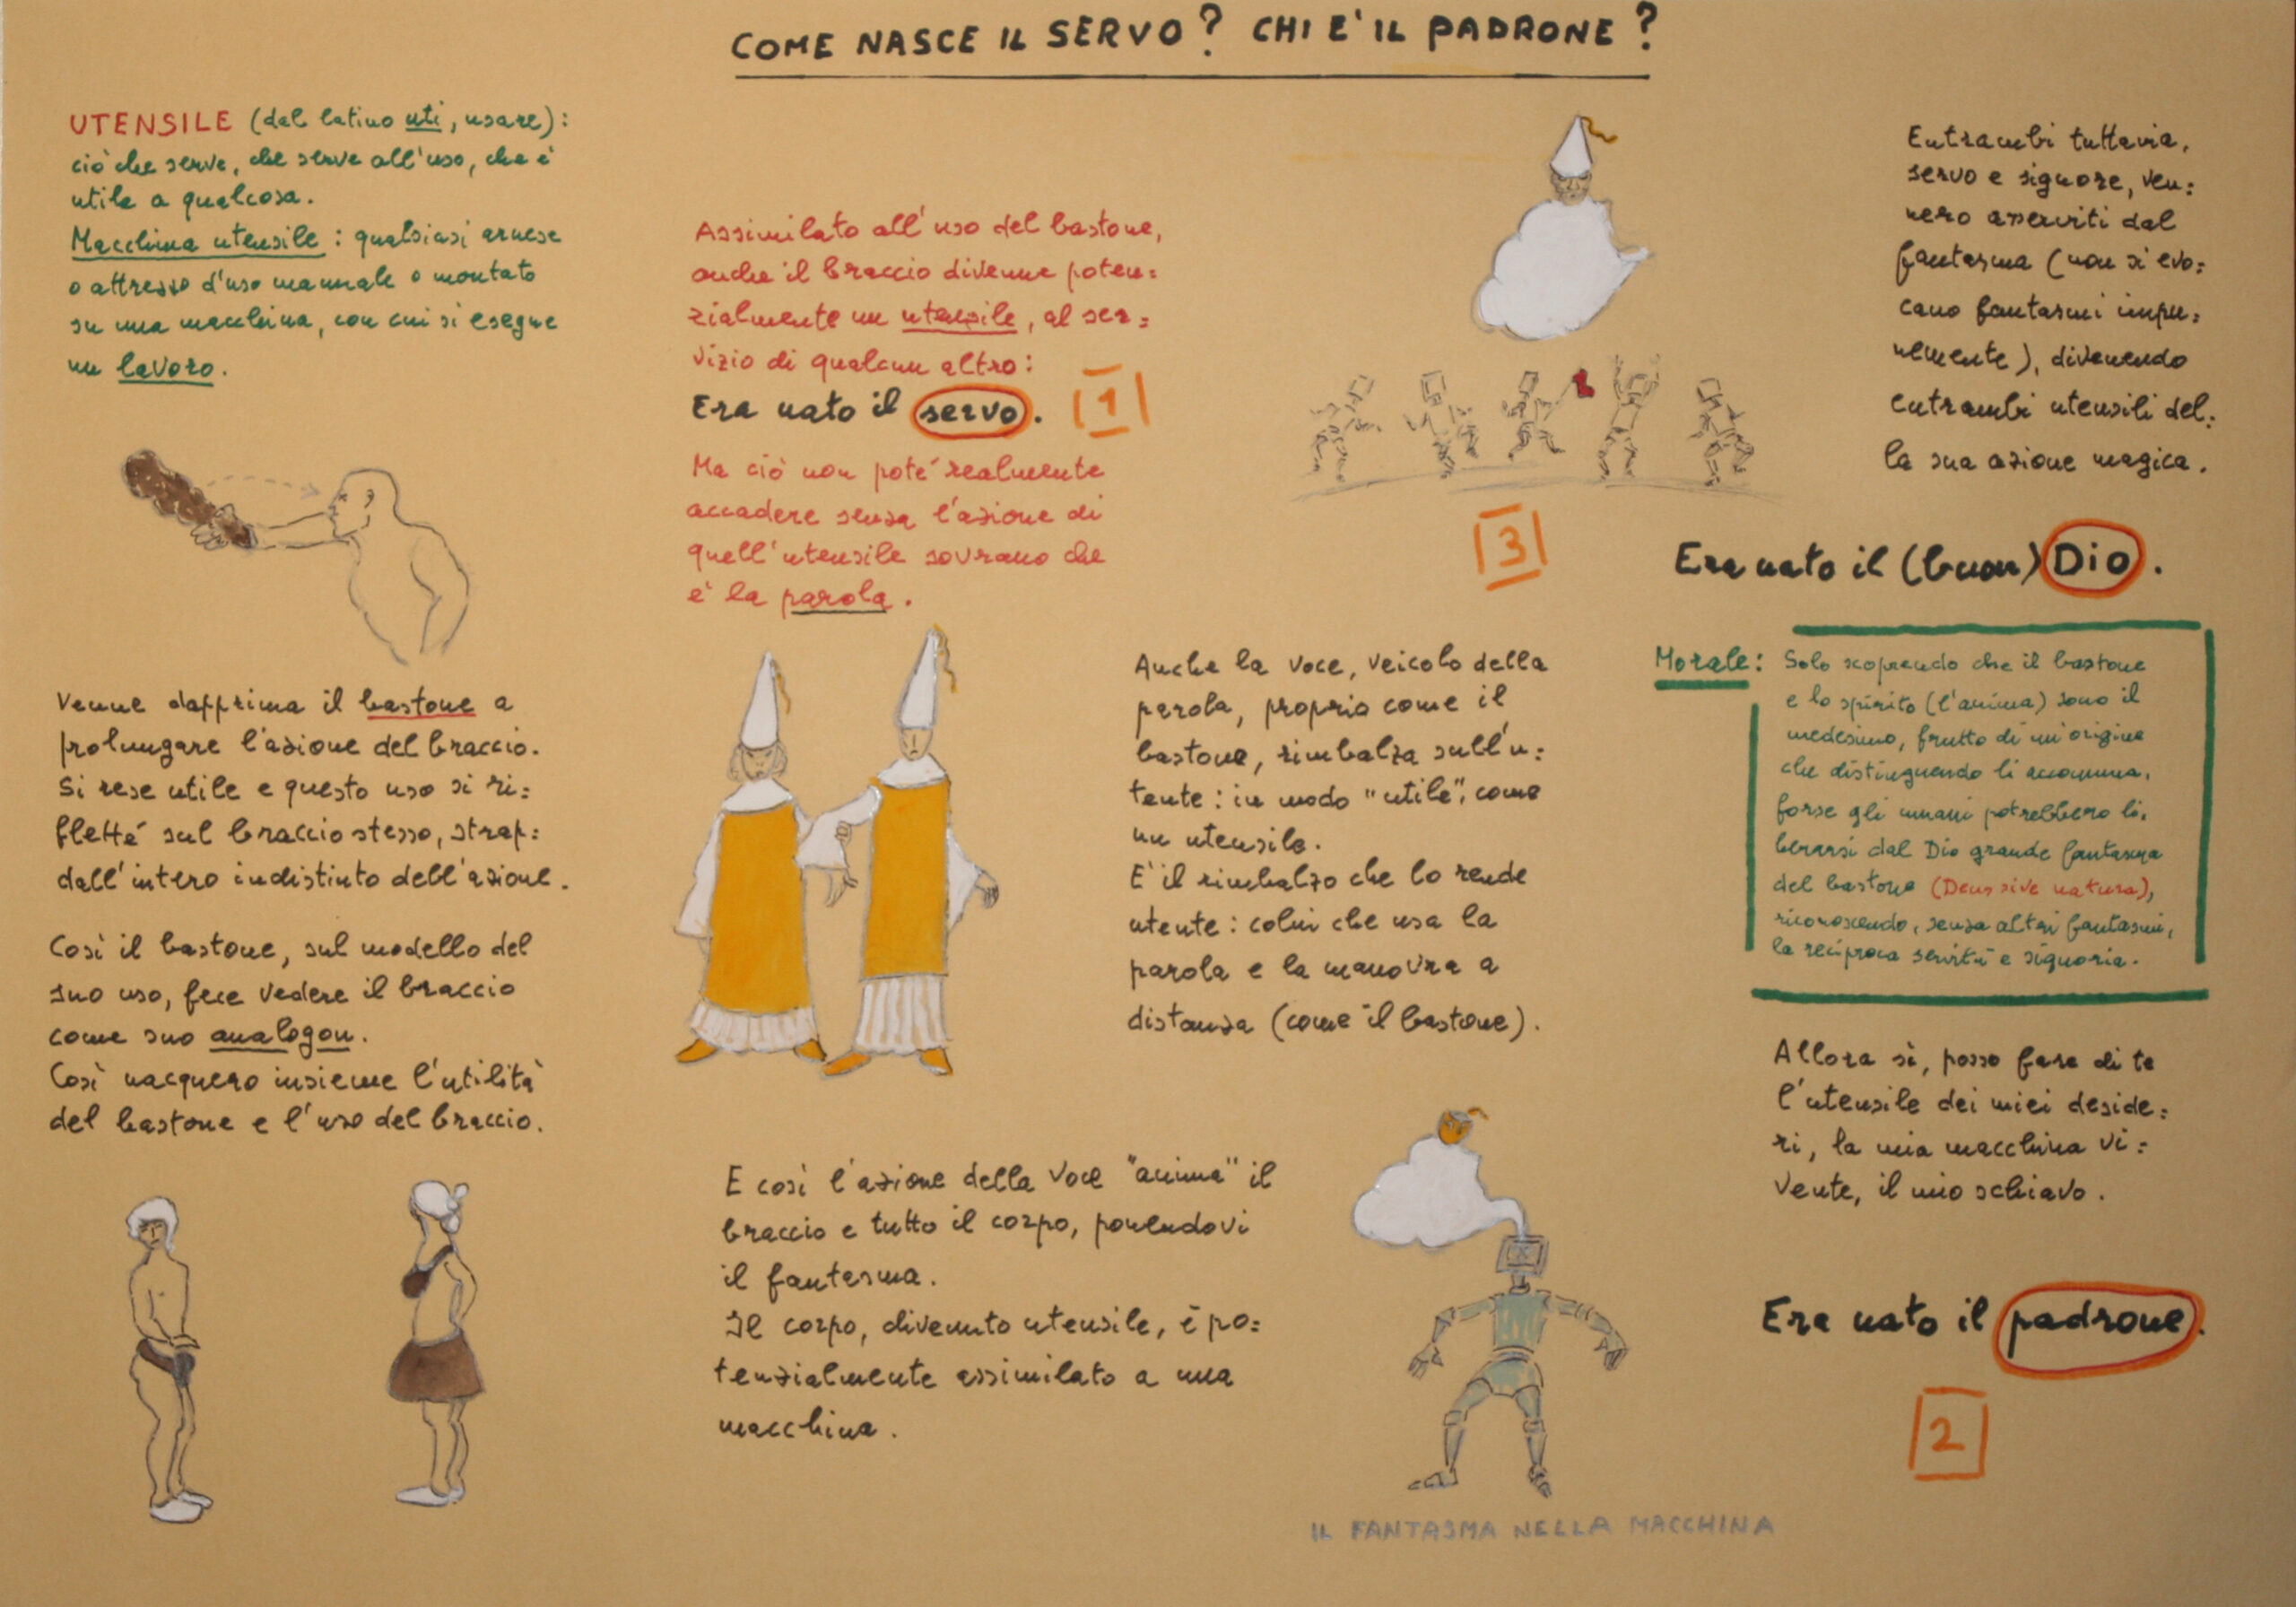 COME NASCE IL SERVO? CHI E' IL PADRONE?
UTENSILE (dal latino uti, usare):
ciò che serve, che serve all'uso, che è
utile a qualcosa.
Macchina utensile: qualsiasi arnese
o attrezzo d'uso manuale o montato
su una macchina, con cui si esegue
un lavoro.
Venne dapprima il bastone a
prolungare l'azione del braccio.
Si rese utile e questo uso si ri=
fletté sul braccio stesso, strap=
dall'intero indistinto dell'azione.
Così il bastone, sul modello del
suo uso, fece vedere il braccio
come suo analogon.
Così nacquero insieme l'utilità
del bastone e l'uso del braccio.
Assimilato all'uso del bastone,
anche il braccio divenne poten=
zialmente un utensile, al ser=
vizio di qualcun altro:
Era nato il servo.
1
Ma ciò non poté realmente
accadere senza l'azione di
quell'utensile sovrano che
è la parola.
Anche la voce, veicolo della
parola, proprio come il
bastone, rimbalza sull'u=
tente: in modo "utile", come
un utensile.
E' il rimbalzo che lo rende
utente: colui che usa la
parola e la manovra a
distanza (come il bastone).
E così l'azione della voce "anima" il
braccio e tutto il corpo, ponendovi
il fantasma.
Il corpo, divenuto utensile, è po=
tenzialmente assimilato a una
macchina.
IL FANTASMA NELLA MACCHINA
Allora sì, posso fare di te
l'utensile dei miei deside=
ri, la mia macchina vi=
vente, il mio schiavo.
Era nato il padrone.
2
3
Entrambi tuttavia,
servo e signore, ven=
nero asserviti dal
fantasma (non si evo=
cano fantasmi impu=
nemente), divenendo
entrambi utensili del=
la sua azione magica.
Era nato il (buon) Dio.
Morale: Solo scoprendo che il bastone
e lo spirito (l'anima) sono il
medesimo, frutto di un'origine
che distinguendo li accomuna,
forse gli umani potrebbero li=
berarsi dal Dio grande fantasma
del bastone (Deus sive natura),
riconoscendo, senza altri fantasmi,
la reciproca servitù e signoria.